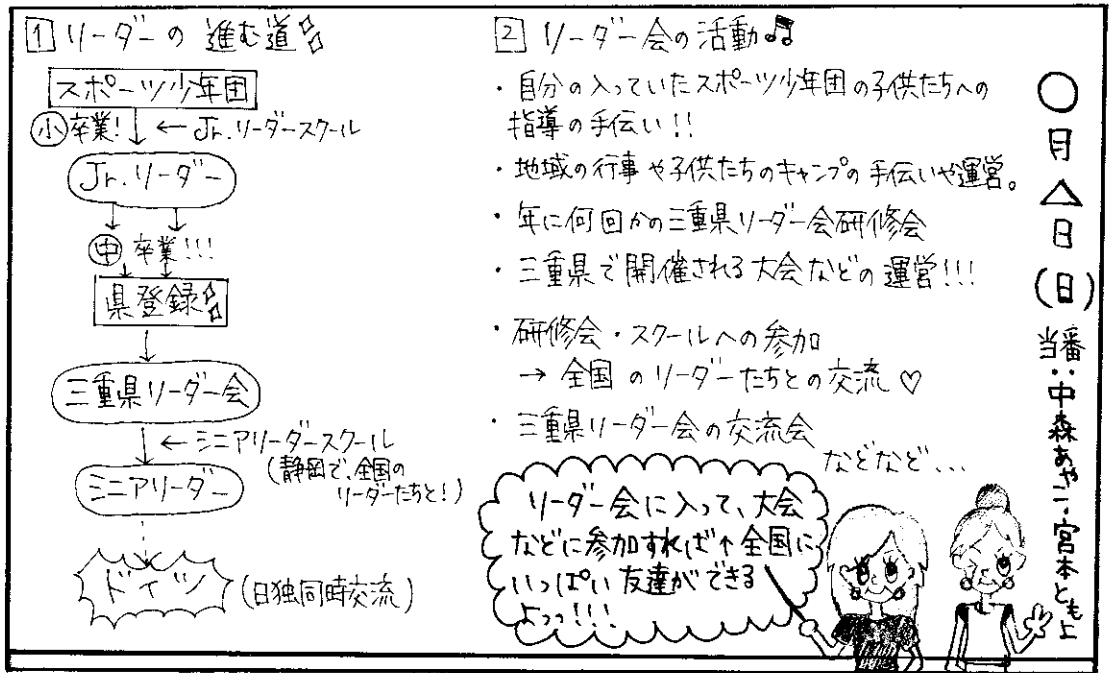 1 リーダーの進む道
スポーツ少年団
小卒業! ← Jr.リーダースクール
Jr.リーダー
中卒業!!!
県登録
三重県リーダー会
← シニアリーダースクール
(静岡で、全国の
リーダーたちと!)
シニアリーダー
ドイツ (日独同時交流)
2 リーダー会の活動♫
・自分の入っていたスポーツ少年団の子供たちへの
指導の手伝い!!
・地域の行事や子供たちのキャンプの手伝いや運営。
・年に何回かの三重県リーダー会研修会
・三重県で開催される大会などの運営!!!
・研修会・スクールへの参加
→ 全国のリーダーたちとの交流♡
・三重県リーダー会の交流会
などなど...
リーダー会に入って、大会
などに参加すれば↑全国に
いっぱい友達ができる
よっっ!!!
○月△日(日) 当番:中森あや・宮本とも